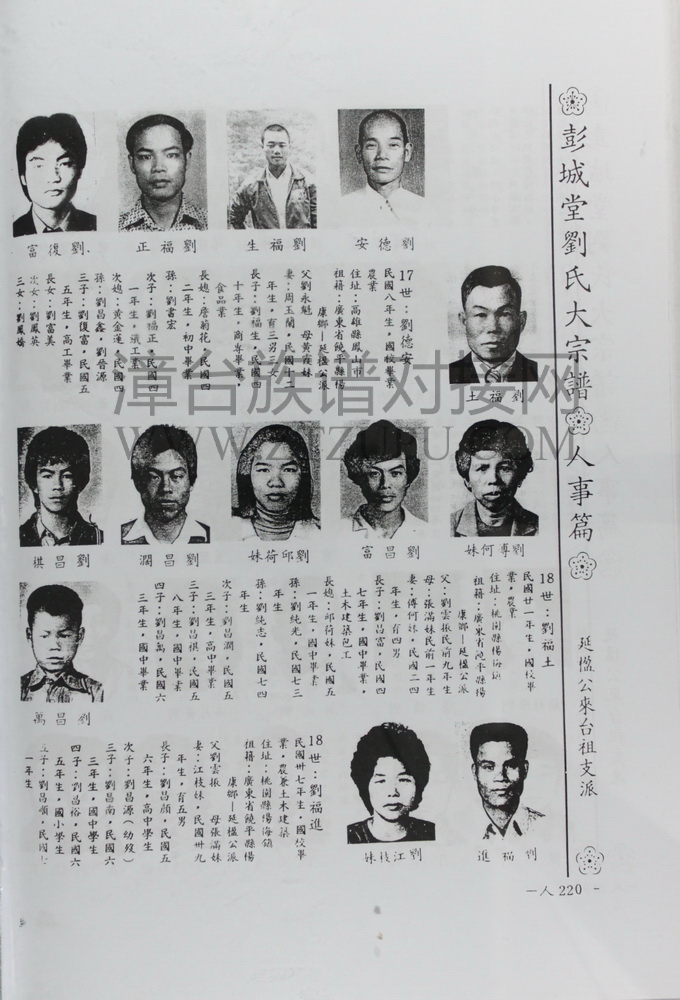 彭城堂劉氏大宗譜 人事篇
延楹公來台祖支派
-人220-
劉德安
劉福生
劉福正
劉復富
劉福土
17世：劉德安
民國八年生，國校畢業
農業
住址：高雄縣鳳山市
祖籍：廣東省饒平縣楊
康鄉—延楹公派
父劉永魁 母黃霞妹
妻：周玉蘭，民國十二
年生，育三男三女
長子：劉福生，民國四
十年生，商專畢業，
食品業
長媳：詹菊花，民國四
二年生，初中畢業
孫：劉書宏
次子：劉福正，民國四
一年生，鐵工業
次媳：黃金蓮，民國四
孫：劉昌鑫，劉晉源
三子：劉復富，民國五
五年生，高工畢業
長女：劉富美
次女：劉鳳英
三女：劉鳳嬌
漳台族谱对接网
WWW.ZTZUPU.COM
劉專何妹
劉昌富
劉邱荷妹
劉昌潤
劉昌祺
劉昌萬
18世：劉福土
民國廿一年生，國校畢
業，農業
住址：桃園縣楊梅鎮
祖籍：廣東省饒平縣楊
康鄉—延楹公派
父：劉雲振民前九年生
母：張滿妹民前一年生
妻：傅何妹，民國二四
年生，育四男
長子：劉昌富，民國四
七年生，國中畢業，
土木建築包工
長媳：邱荷妹，民國五
一年生，國中畢業
孫：劉純光，民國七三
年生
孫：劉純志，民國七四
年生
次子：劉昌潤，民國五
三年生，高中畢業
三子：劉昌祺，民國五
八年生，國中畢業
四子：劉昌萬，民國六
三年生，國中畢業
劉福進
劉江枝妹
18世：劉福進
民國卅七年生，國校畢
業，農兼土木建築
住址：桃園縣楊梅鎮
祖籍：廣東省饒平縣楊
康鄉—延楹公派
父劉雲振 母張滿妹
妻：江枝妹，民國卅九
年生，育五男
長子：劉昌順，民國五
六年生，高中學生
次子：劉昌源（幼歿）
三子：劉昌南，民國六
三年生，國中學生
四子：劉昌裕，民國六
五年生，國小學生
五子：劉昌順，民國七
一年生